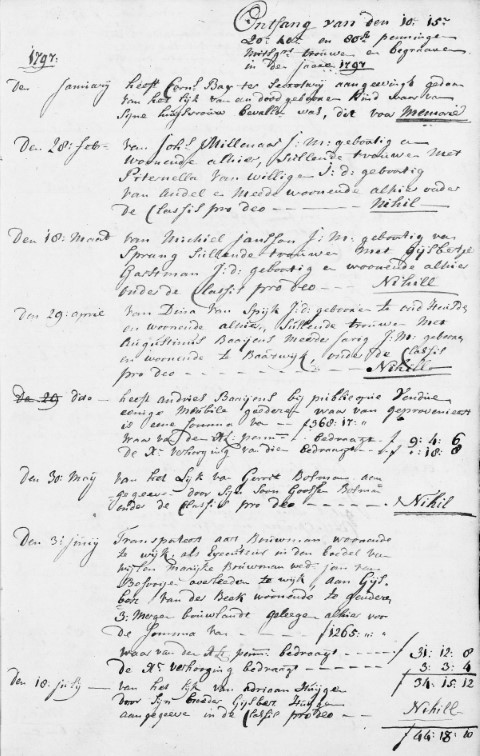 Ontfang van den 10: 15e
20: 40e en 80ste penningen
mitsgrs trouwen en begraaven
in den jaare 1797
1797:
Den Januarij heeft Corns Bax ter Secretarij aangevinge gedaan
van het lijk van een dood gebooren kind waar van
Syne huijsvrouw bevallen was, dit voor Memorie
Den 28: feb van Johs Millenaar J: M: geboortig en
woonende alhier, Sullende trouwen met
Peternella van Willigen J: d: geboortig
van Andel en Meede woonende alhier onder
de Classis pro deo Nihil
Den 18: Maart van Michiel Janssen J: M: geboortig van
Sprang Sullende trouwen met Gijsbertje
J: d: geboortig en woonende alhier
onder de Classis pro deo Nihill
Den 29: april van Dina van Spijk J: d: gebooren te oud Heusden
en woonende alhier, Sullende trouwen Met
Augustinus Baaijens Meerder Jarig J: M: gebooren
en woonende te Baardwijk, onder de Classis
pro deo Nihill
De 29 dito heeft andries Baaijens bij publicque Vendue
eenige Mobiele goederen waar van geprovenieert
is eene Somma van f 368: 17: "
waar van de penn: bedraagt f 9: 4: 6
de Xe verhooging van dien bedraagt f ": 18: 8
Den 30: Maij van het Lijk van Gerrit Bolman aen
gegeeven door Sijn Soon Goossen Bolman
onder de Classis pro deo Nihil
Den 3: junij Transporteert aart Bouwman woonende
te wijk, als Executeur in den boedel van
wijlen Marijke Bouwman wede: jan van
overleeden te wijk, aan Gijs
bert van der Beek woonende te genderen
3: Mergen bouwlandt geleegen alhier voor
de Somma van f 1265: ": "
waar van den 40e penn: bedraagt f 31: 12: 8
de Xe verhooging bedraagt 3: 3: 4
f 34: 15: 12
Den 18 julij van het lijk van Adriaan
door Sijn broeder Gijsbert
aangegeeve in de Classis pro deo Nihill
f 44: 18: 10